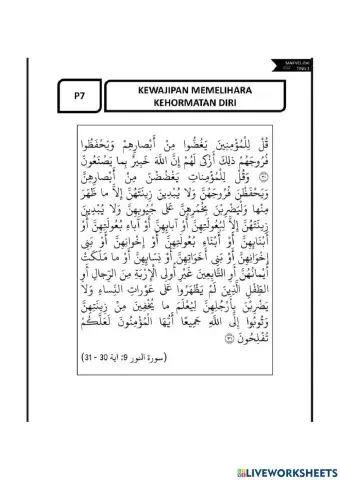 P7
KEWAJIPAN MEMELIHARA
KEHORMATAN DIRI
قُلْ لِلْمُؤْمِنِينَ يَغُضُّوا مِنْ أَبْصَارِهِمْ وَيَحْفَظُوا
فُرُوجَهُمْ ذَلِكَ أَزْكَى لَهُمْ إِنَّ اللَّهَ خَبِيرٌ بِمَا يَصْنَعُونَ
۝٣٠ وَقُلْ لِلْمُؤْمِنَاتِ يَغْضُضْنَ مِنْ أَبْصَارِهِنَّ
وَيَحْفَظْنَ فُرُوجَهُنَّ وَلَا يُبْدِينَ زِينَتَهُنَّ إِلَّا مَا ظَهَرَ
مِنْهَا وَلْيَضْرِبْنَ بِخُمُرِهِنَّ عَلَى جُيُوبِهِنَّ وَلَا يُبْدِينَ
زِينَتَهُنَّ إِلَّا لِبُعُولَتِهِنَّ أَوْ آبَائِهِنَّ أَوْ آبَاءِ بُعُولَتِهِنَّ أَوْ
أَبْنَائِهِنَّ أَوْ أَبْنَاءِ بُعُولَتِهِنَّ أَوْ إِخْوَانِهِنَّ أَوْ بَنِي
إِخْوَانِهِنَّ أَوْ بَنِي أَخَوَاتِهِنَّ أَوْ نِسَائِهِنَّ أَوْ مَا مَلَكَتْ
أَيْمَانُهُنَّ أَوِ التَّابِعِينَ غَيْرِ أُولِي الْإِرْبَةِ مِنَ الرِّجَالِ أَوِ
الطِّفْلِ الَّذِينَ لَمْ يَظْهَرُوا عَلَى عَوْرَاتِ النِّسَاءِ وَلَا
يَضْرِبْنَ بِأَرْجُلِهِنَّ لِيُعْلَمَ مَا يُخْفِينَ مِنْ زِينَتِهِنَّ
وَتُوبُوا إِلَى اللَّهِ جَمِيعًا أَيُّهَا الْمُؤْمِنُونَ لَعَلَّكُمْ
تُفْلِحُونَ ۝٣١
(سورة النور 9: اية 30 - 31)
LIVEWORKSHEETS